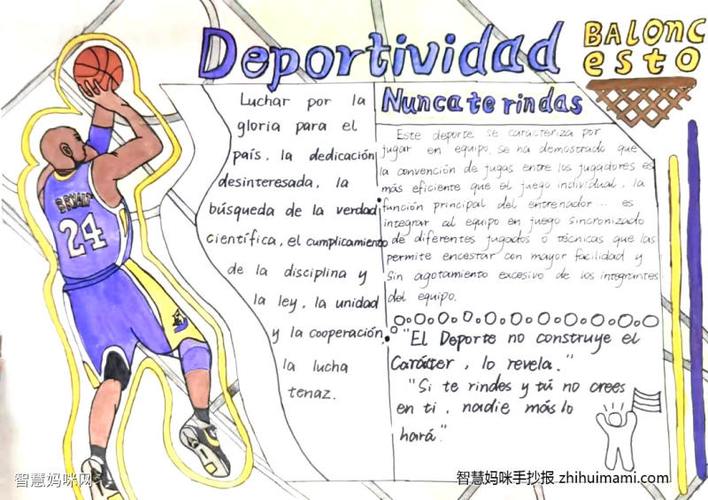 Deportividad
BALONC
esto
Luchar por la
gloria para el
país, la dedicación
desinteresada, la
búsqueda de la verdad
científica, el cumplicamiento
de la disciplina y
la ley, la unidad
y la cooperación,
la lucha
tenaz.
Nunca te rindas
Este deporte se caracteriza por
jugar en equipo, se ha demostrado que
la convención de jugas entre los jugadores es
más eficiente que el juego individual, la
función principal del entrenador.. es
integrar al equipo en juego sincronizado
de diferentes jugados o técnicas que las
permite encestar con mayor facilidad y
sin agotamiento excesivo de los integrantes
del equipo.
"El Deporte no construye el
Carácter, lo revela."
"Si te rindes y tú no crees
en ti, nadie más lo
hará."
BRYANT
24
智慧妈咪网
智慧妈咪手抄报 zhihuimami.com